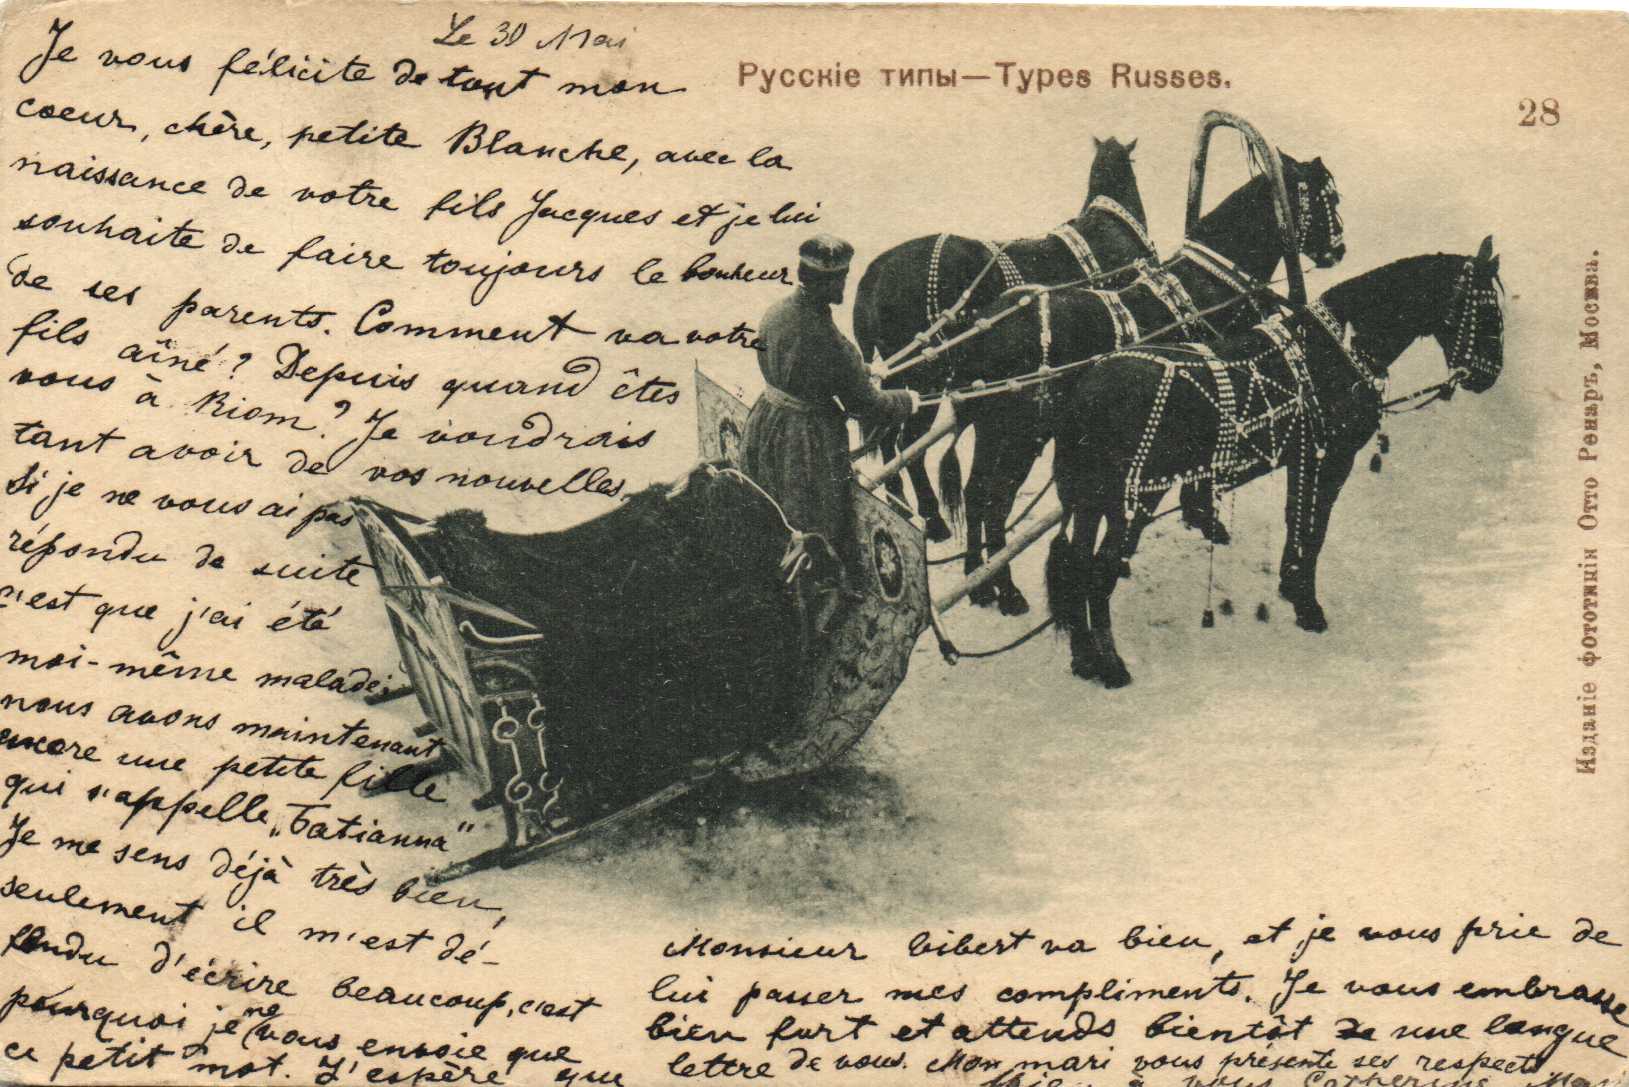 Le 30 Mai
Je vous félicite de tout mon
coeur, chère, petite Blanche, avec la
naissance de votre fils Jacques et je lui
souhaite de faire toujours le bonheur
de ses parents. Comment va votre
fils aîné? Depuis quand êtes
vous à Riom? Je voudrais
tant avoir de vos nouvelles
Si je ne vous ai pas
répondu de suite
c'est que j'ai été
moi-même malade;
nous avons maintenant
encore une petite fille
qui s'appelle „Tatianna"
Je me sens déjà très bien,
seulement il m'est dé-
fendu d'écrire beaucoup, c'est
pourquoi je ne vous envoie que
ce petit mot. J'espère que
Monsieur Gibert va bien, et je vous prie de
lui passer mes compliments. Je vous embrasse
bien fort et attends bientôt de une longue
lettre de vous. Mon mari vous présente ses respects
à vous Catherine
Русскіе типы—Types Russes.
28
Изданіе фототипіи Отто Ренаръ, Москва.